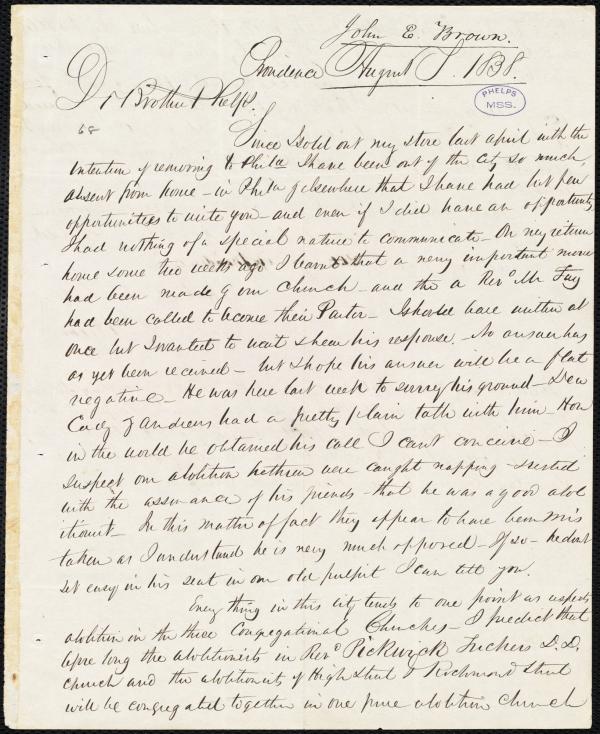 John E. Brown.
Providence August 8. 1838.
PHELPS
MSS.
Dr Brother Phelps.
68
Since I sold out my store last april with the
intention of removing to Phila I have been out of the City so much,
absent from home - in Phila & elsewhere that I have had but few
opportunities to write you - and even if I did have an opportunity
I had nothing of a special nature to communicate - On my return
home some two weeks ago I learnt that a very important move
had been made by our Church - and that a Revd Mr Fay
had been called to become their Pastor - I should have written at
once but I wanted to wait & hear his response. - No answer has
as yet been received - but I hope his answer will be a flat
negative - He was here last week to survey his ground - Dea
Cady & Andrews had a pretty plain talk with him - How
in the world he obtained his call I cant conceive - I
suspect our abolition brethren were caught napping -
with the assurance of his friends - that he was a good abol
itionist - In this matter of fact they appear to have been mis
taken as I understand he is very much opposed - If so - he dont
set easy in his seat in our old pulpit I can tell you.
Every thing in this city tends to one point as respects
abolition in the three Congregational Churches - I predict that
before long the abolitionists in Revd Pickwick Tuckers D.D.
church and the abolitionists of High Street & Richmond Street
will be congregated together in one pure abolition church